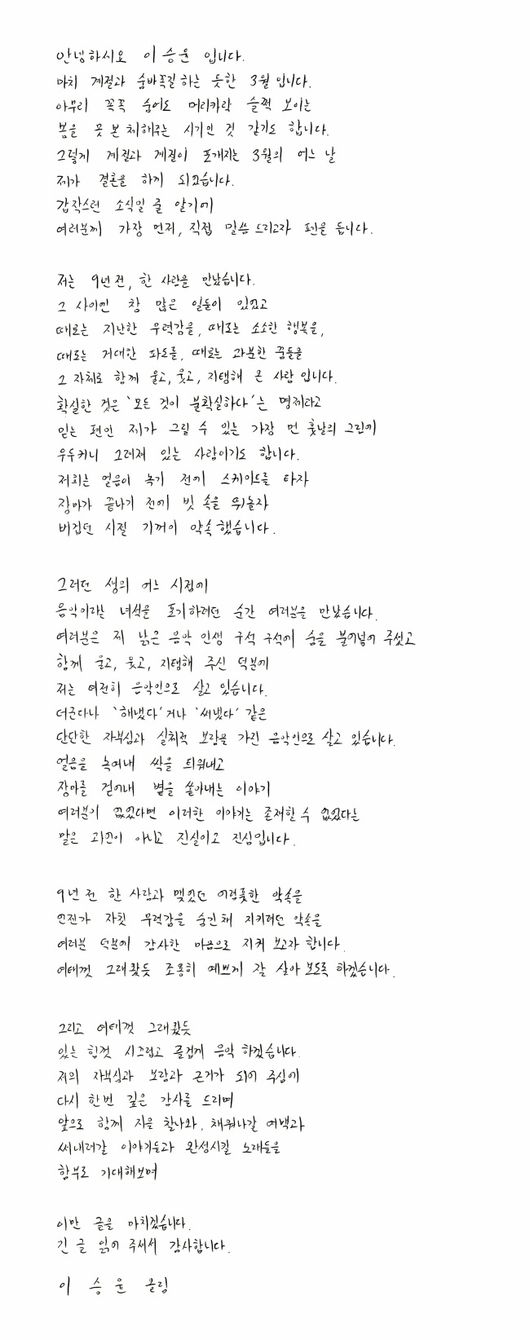 안녕하시오 이승윤 입니다.
마치 계절과 숨바꼭질하는 듯한 3월입니다.
아무리 꼭꼭 숨어도 머리카락 슬쩍 보이는
봄을 못 본 체해주는 시기인 것 같기도 합니다.
그렇게 계절과 계절이 포개지는 3월의 어느 날
제가 결혼을 하게 되었습니다.
갑작스런 소식일 줄 알기에
여러분께 가장 먼저, 직접 말씀드리고자 펜을 듭니다.
저는 9년 전, 한 사람을 만났습니다.
그 사이엔 참 많은 일들이 있었고
때로는 지난한 무력감을, 때로는 소소한 행복을,
때로는 거대한 파도를, 때로는 과분한 꿈들을
그 자체로 함께 울고, 웃고, 지탱해 온 사람입니다.
확실한 것은 '모든 것이 불확실하다'는 명제라고
믿는 편인 제가 그릴 수 있는 가장 먼 훗날의 그림에
우두커니 그려져 있는 사람이기도 합니다.
저희는 얼음이 녹기 전에 스케이트를 타자
장마가 끝나기 전에 빗 속을 뛰놀자
버겁던 시절 기꺼이 약속했습니다.
그러던 생의 어느 시점에
음악이라는 녀석을 포기하려던 순간 여러분을 만났습니다.
여러분은 제 낡은 음악 인생 구석구석에 숨을 불어넣어 주셨고
함께 울고, 웃고, 지탱해 주신 덕분에
저는 여전히 음악인으로 살고 있습니다.
더군다나 '해냈다'거나 '써냈다' 같은
단단한 자부심과 실체적 보람을 가진 음악인으로 살고 있습니다.
얼음을 녹여내 싹을 틔워내고
장마를 걷어내 볕을 쏟아내는 이야기
여러분이 없었다면 이러한 이야기는 존재할 수 없었다는
말은 과언이 아니고 진실이고 진심입니다.
9년 전 한 사람과 맺었던 어렴풋한 약속을
언젠가 자칫 무력감을 숨긴 채 지키려던 약속을
여러분 덕분에 감사한 마음으로 지켜 보고자 합니다.
여태껏 그래왔듯 조용히 예쁘게 잘 살아보도록 하겠습니다.
그리고 여태껏 그래왔듯
있는 힘껏 시끄럽고 즐겁게 음악 하겠습니다.
저의 자부심과 보람과 근거가 되어 주심에
다시 한번 깊은 감사를 드리며
앞으로 함께 지을 찰나와, 채워나갈 여백과
써내려갈 이야기들과 완성시킬 노래들을
함부로 기대해보며
이만 글을 마치겠습니다.
긴 글 읽어 주셔서 감사합니다.
이승윤 올림